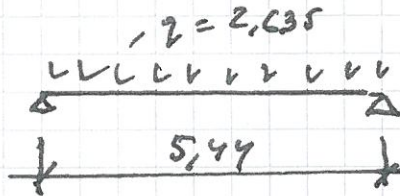 q = 2,635
5,44